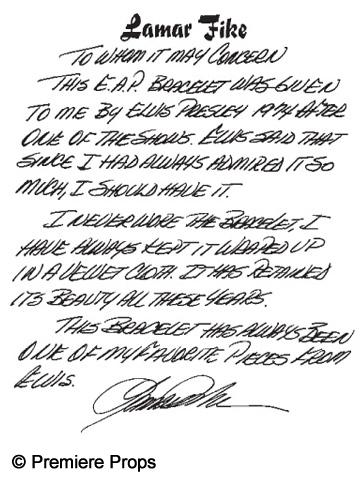 Lamar Fike
TO WHOM IT MAY CONCERN
THIS E.A.P. BRACELET WAS GIVEN
TO ME BY ELVIS PRESLEY 1974 AFTER
ONE OF THE SHOWS. ELVIS SAID THAT
SINCE I HAD ALWAYS ADMIRED IT SO
MUCH, I SHOULD HAVE IT.
I NEVER WORE THE BRACELET, I
HAVE ALWAYS KEPT IT WRAPED UP
IN A VELVET CLOTH. IT HAS RETAINED
ITS BEAUTY ALL THESE YEARS.
THIS BRACELET HAS ALWAYS BEEN
ONE OF MY FAVORITE PIECES FROM
ELVIS.
© Premiere Props